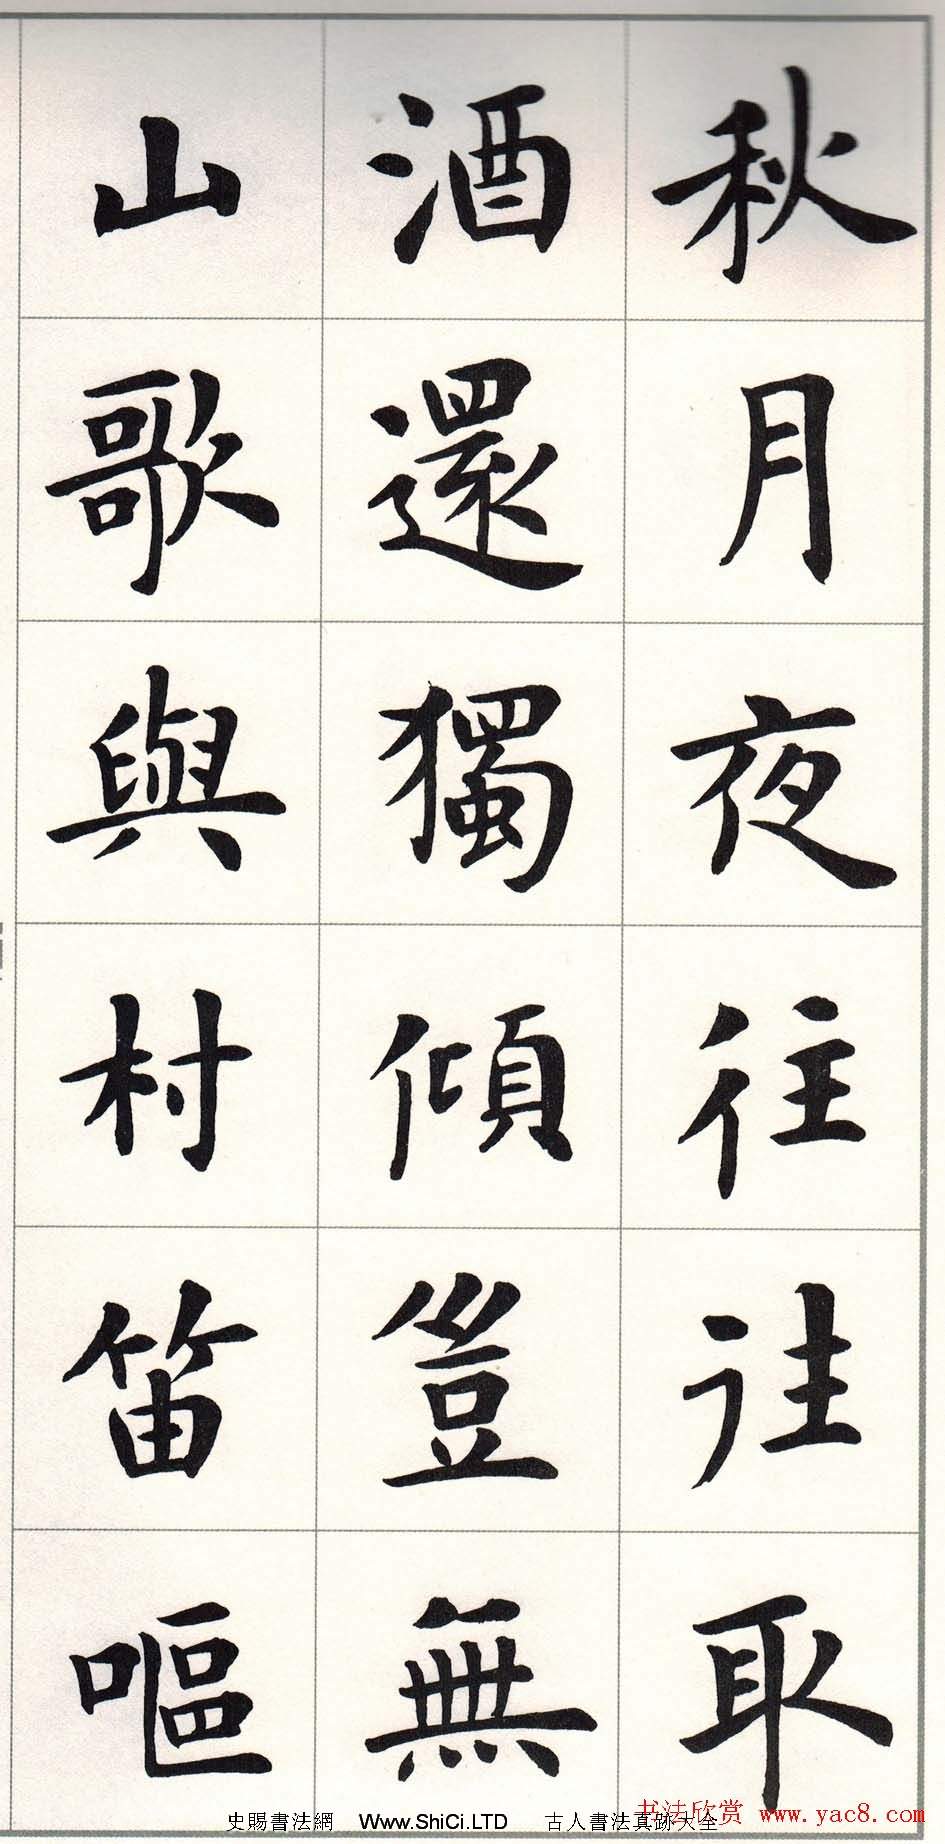 秋月夜往往取
酒還獨傾豈無
山歌與村笛嘔
史賜書法網 Www.ShiCi.LTD 古人書法真跡大全
书法欣赏 www.yac8.com